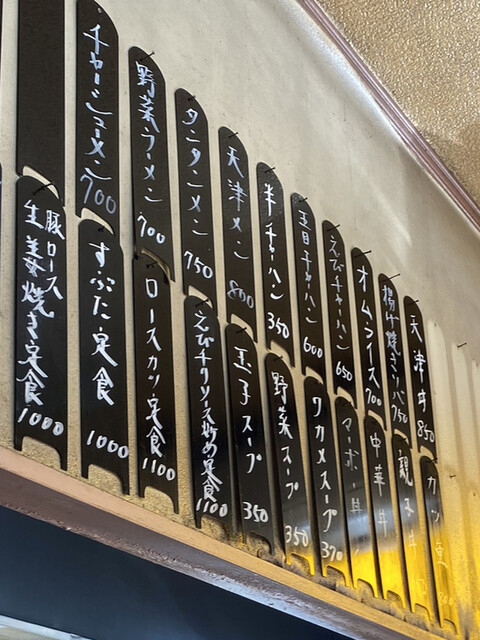 チャーシューメン 700
野菜ラーメン 700
タンタンメン 750
天津メン 800
半チャーハン 350
五目チャーハン 600
えびチャーハン 650
オムライス 700
揚げ焼きソバ 750
天津丼 850
豚ロース
生姜焼き定食 1000
すぶた定食 1000
ロースカツ定食 1100
えびチリソース炒め定食 1100
玉子スープ 350
野菜スープ 350
ワカメスープ 370
マーボー丼
中華丼
親子丼
カツ